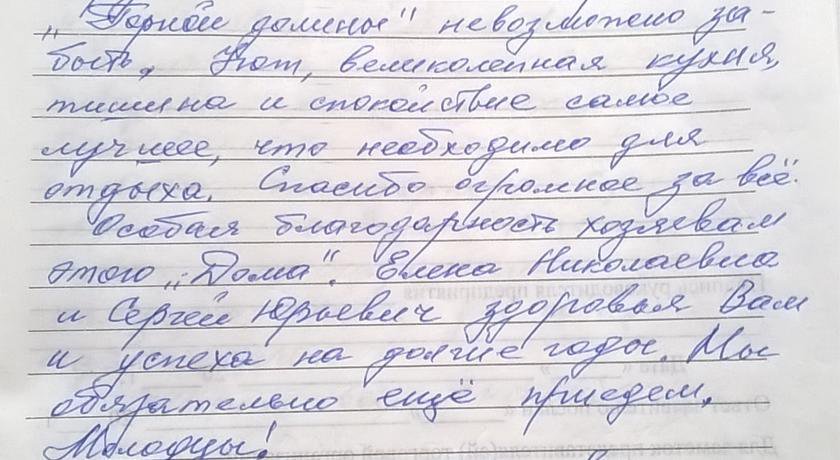 „Горной долины" невозможно за-
быть. Уют, великолепная кухня,
тишина и спокойствие самое
лучшее, что необходимо для
отдыха. Спасибо огромное за всё.
Особая благодарность хозяевам
этого „Дома". Елена Николаевна
и Сергей Юрьевич здоровья Вам
и успеха на долгие годы. Мы
обязательно ещё приедем.
Молодцы!